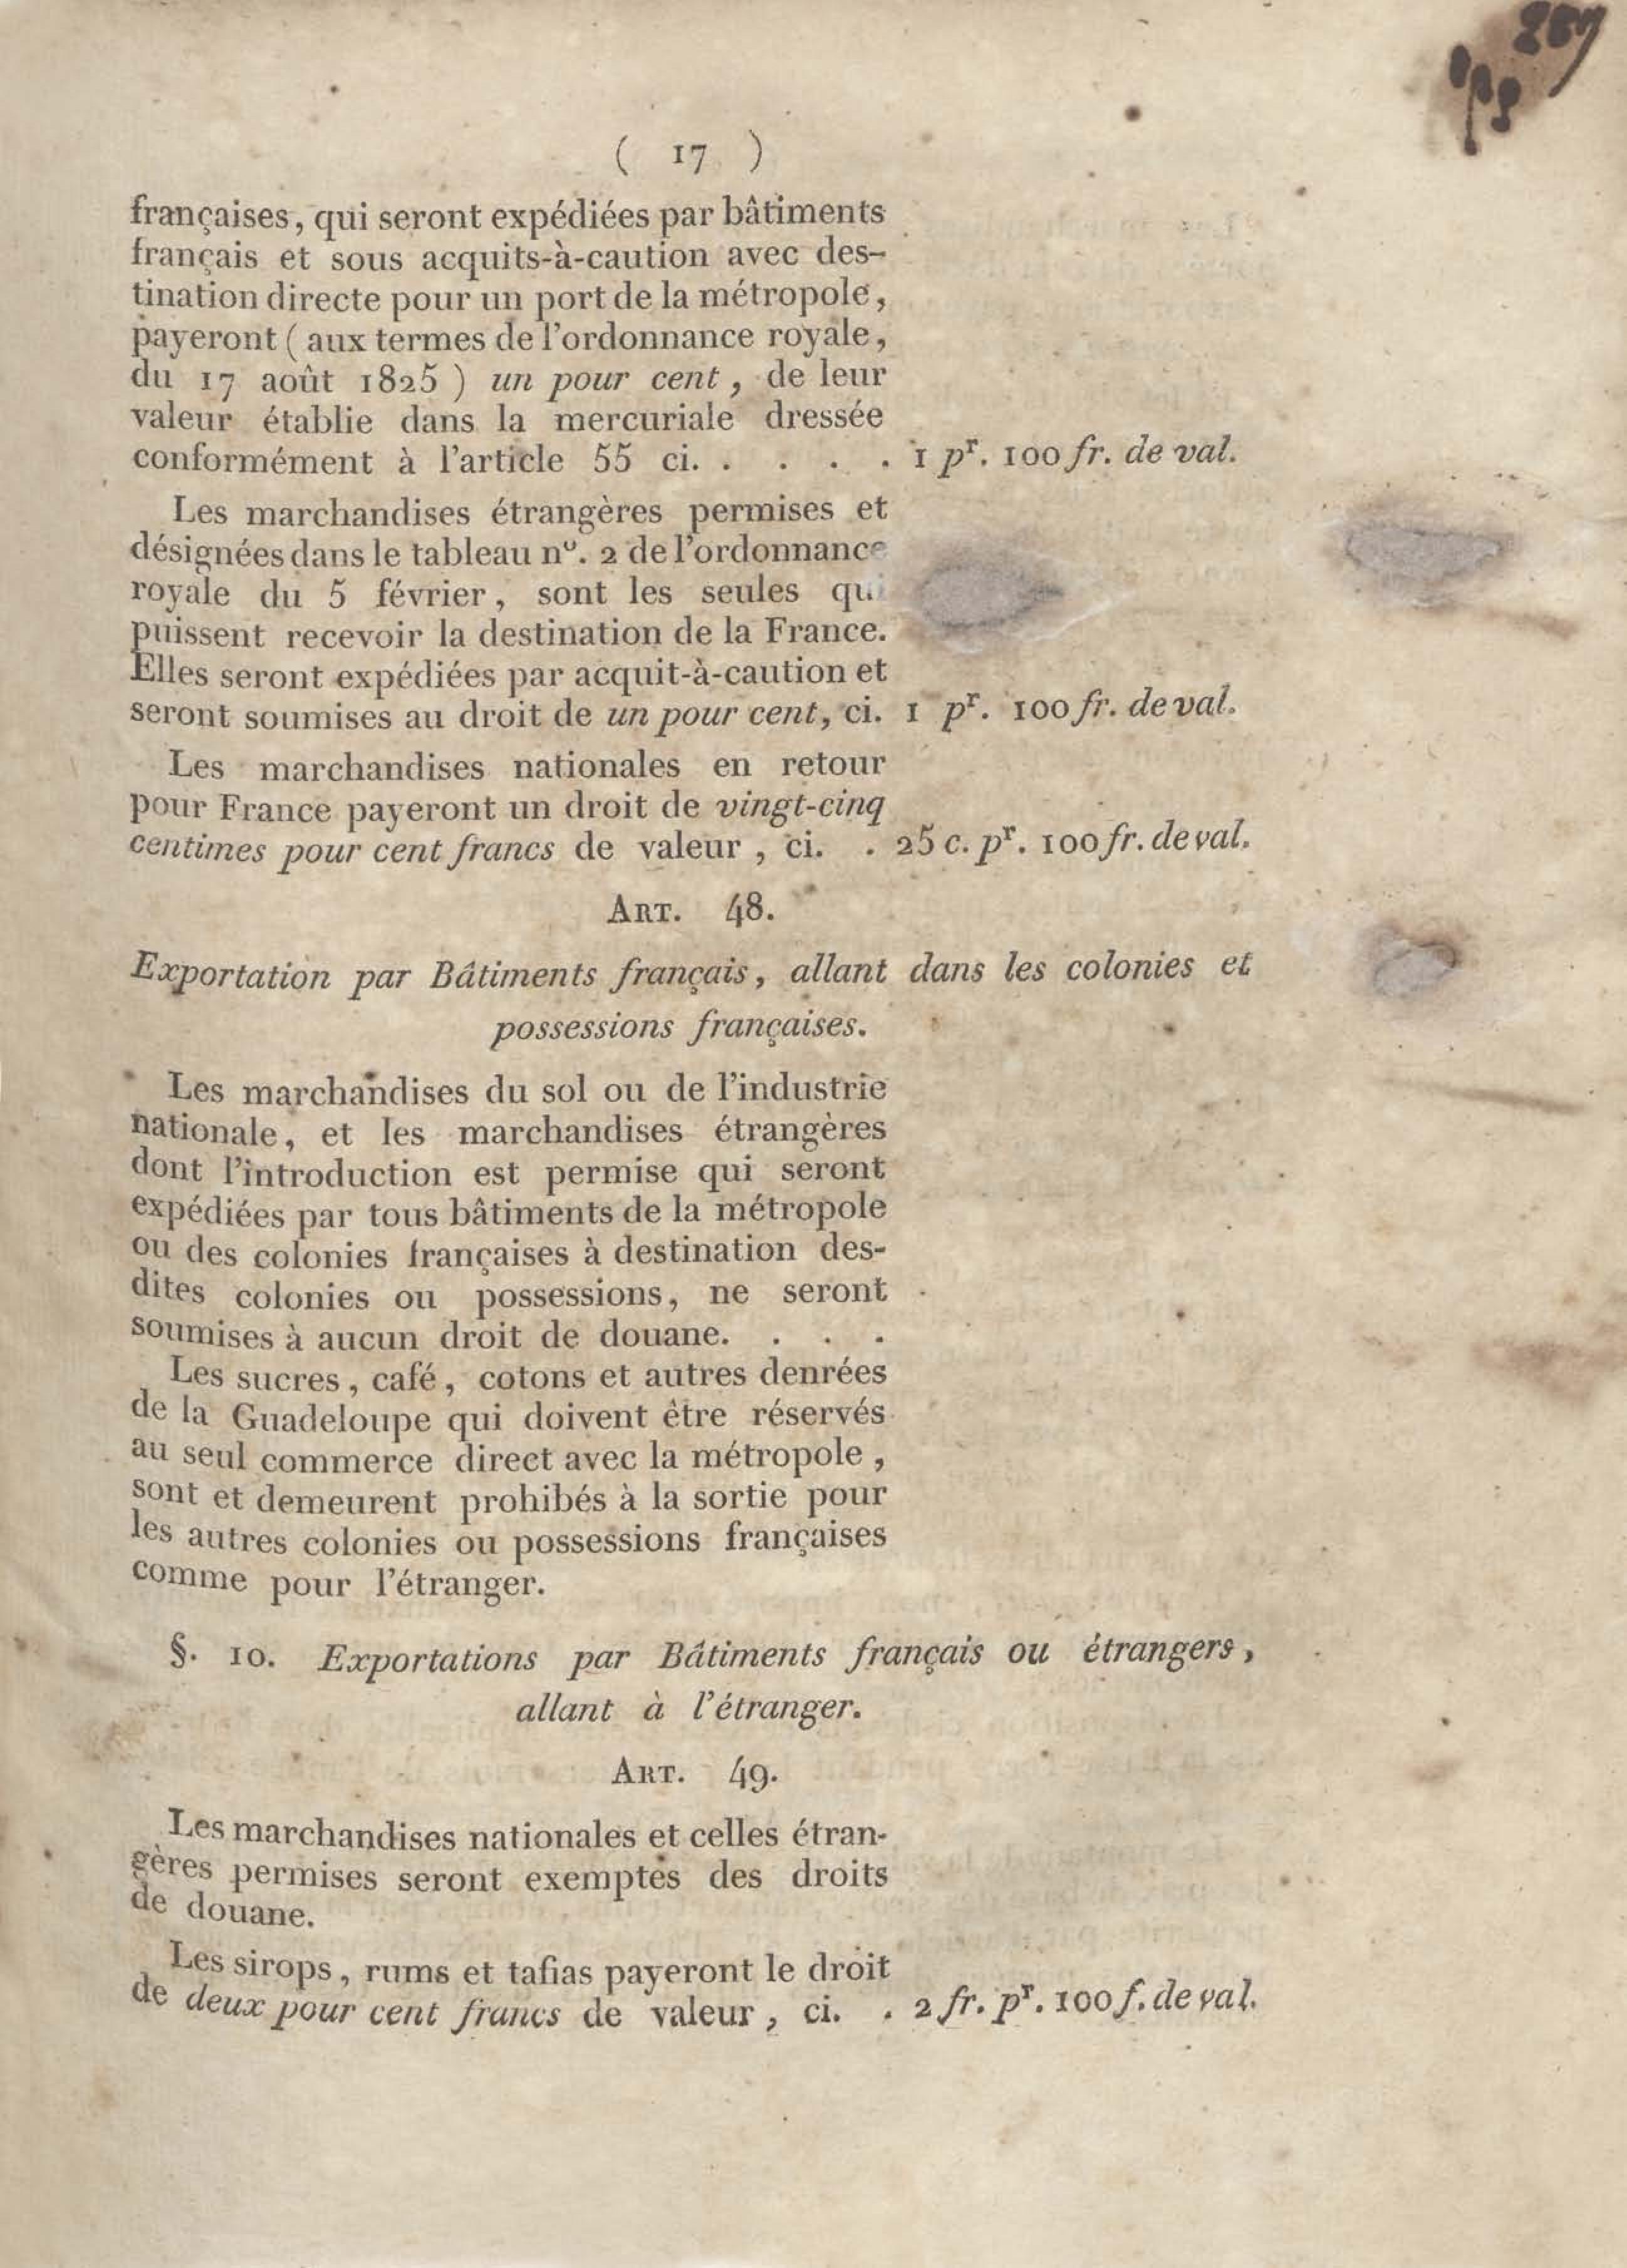 ( 17 )
françaises, qui seront expédiées par bâtiments
français et sous acquits-à-caution avec des-
tination directe pour un port de la métropole,
payeront ( aux termes de l'ordonnance royale,
du 17 août 1825 ) un pour cent, de leur
valeur établie dans la mercuriale dressée
conformément à l'article 55 ci. . . . . 1 pr. 100 fr. de val.
Les marchandises étrangères permises et
désignées dans le tableau no. 2 de l'ordonnance
royale du 5 février, sont les seules qui
puissent recevoir la destination de la France.
Elles seront expédiées par acquit-à-caution et
seront soumises au droit de un pour cent, ci. 1 pr. 100 fr. de val.
Les marchandises nationales en retour
pour France payeront un droit de vingt-cinq
centimes pour cent francs de valeur, ci. . 25 c. pr. 100 fr. de val.
ART. 48.
Exportation par Bâtiments français, allant dans les colonies et
possessions françaises.
Les marchandises du sol ou de l'industrie
nationale, et les marchandises étrangères
dont l'introduction est permise qui seront
expédiées par tous bâtiments de la métropole
ou des colonies françaises à destination des-
dites colonies ou possessions, ne seront
soumises à aucun droit de douane. . . .
Les sucres, café, cotons et autres denrées
de la Guadeloupe qui doivent être réservés
au seul commerce direct avec la métropole,
sont et demeurent prohibés à la sortie pour
les autres colonies ou possessions françaises
comme pour l'étranger.
§. 10. Exportations par Bâtiments français ou étrangers,
allant à l'étranger.
ART. 49.
Les marchandises nationales et celles étran-
gères permises seront exemptes des droits
de douane.
Les sirops, rums et tafias payeront le droit
de deux pour cent francs de valeur, ci. . 2 fr. pr. 100 f. de val.